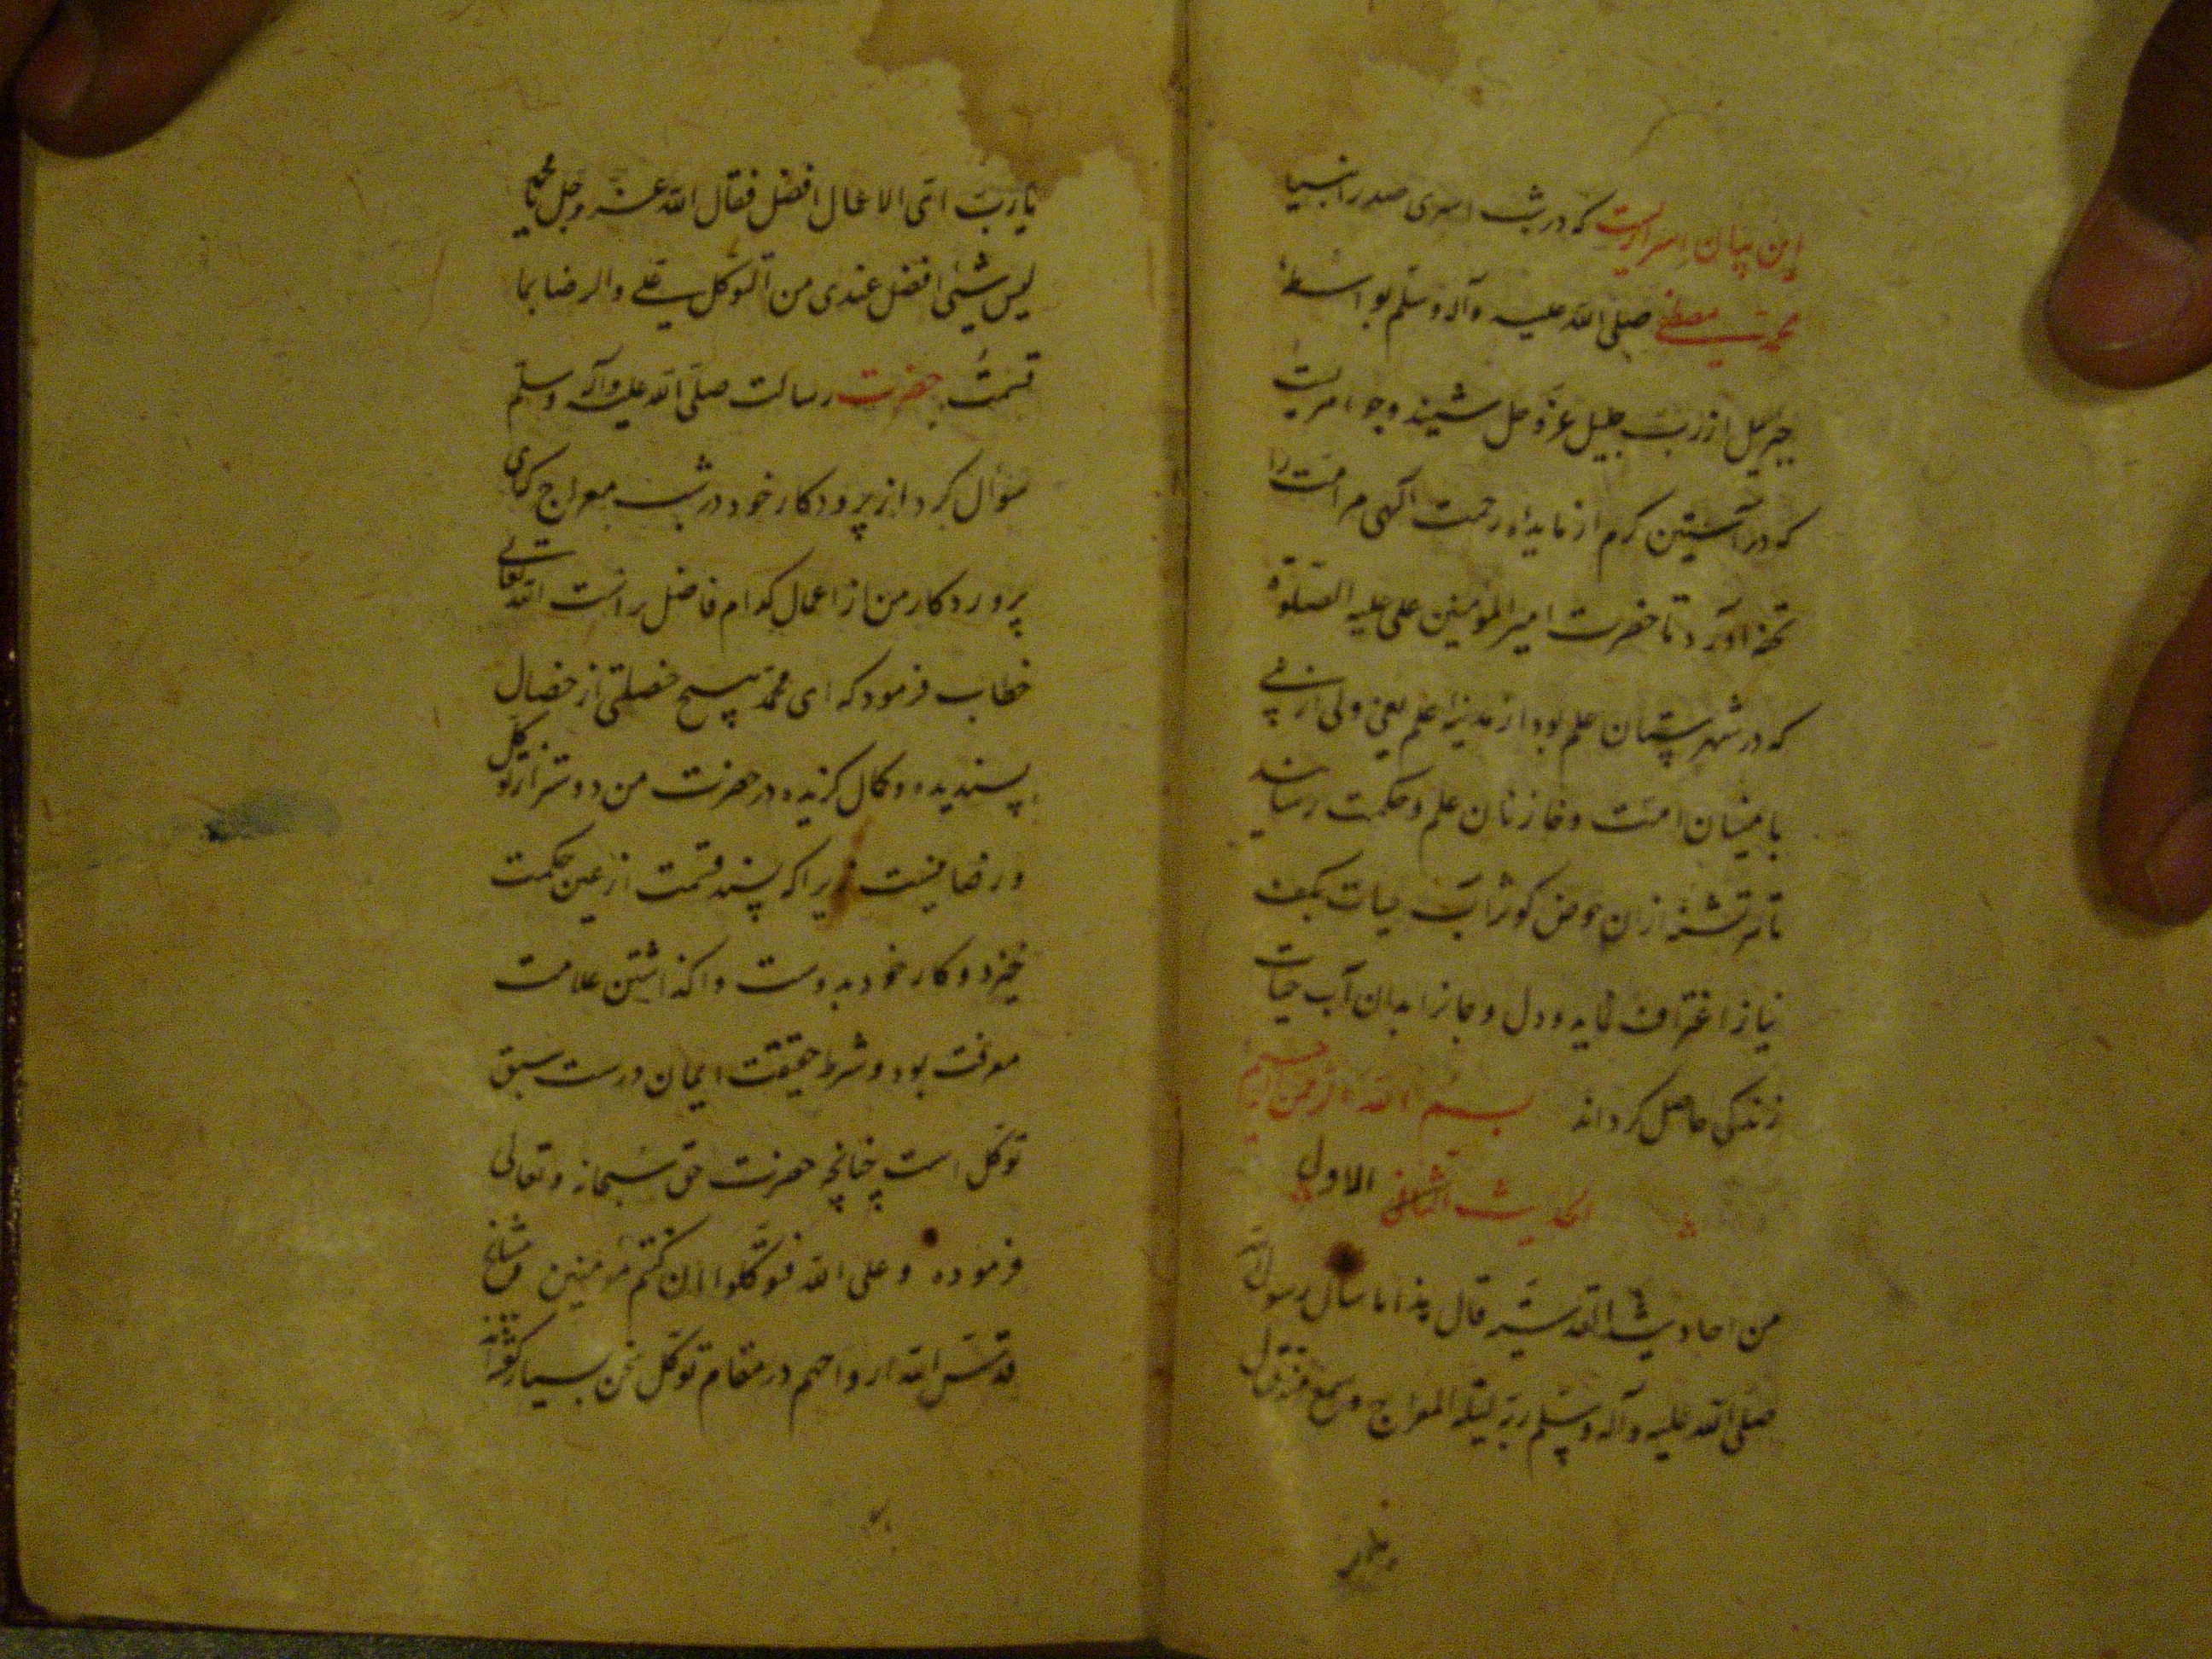 این بیان اسراریست که در شب اسری صدر انبیا
محمد مصطفی صلی الله علیه وآله وسلم بواسطهٔ
جبرئیل از رب جلیل عز وجل شنیند و جوامریست
که در آستین کرم از مایدهٔ رحمت الهی مر امت را
تحفه آورد تا حضرت امیر المؤمنین علی علیه الصلوة
که در شهرستان علم بود از مدینهٔ علم یعنی ولی از نبی
بامینان امت و خازنان علم و حکمت رساند
تا هر تشنه ازان حوض کوثر آب حیات بکف
نیاز اغتراف نماید و دل و جانرا بدان آب حیات
زندگی حاصل کرداند بسم الله الرحمن الرحیم
الحدیث الاول
من احادیث القدسیة قال هذا ما سأل رسول الله
صلی الله علیه وآله وسلم ربه لیلة المعراج وسمع منه فقال
یا رب ای الاعمال افضل فقال الله عز وجل یا محمد
لیس شیئی افضل عندی من التوکل علی والرضا بما
قسمت حضرت رسالت صلی الله علیه وآله وسلم
سؤال کرد از پرودکار خود در شب معراج که ای
پروردکار من از اعمال کدام فاضل راست الله تعالی
خطاب فرمود که ای محمد هیچ خصلتی از خصال
پسندیده و کمال کزیده در حضرت من دوستر از توکل
و رضا نیست زیرا که پسند قسمت از عین حکمت
خیزد و کار خود بدوست واکذاشتن علامت
معرفت بود و شرط حقیقت ایمان درست سبق
توکل است چنانچه حضرت حق سبحانه وتعالی
فرموده وعلی الله فتوکلوا ان کنتم مؤمنین و مشایخ
قدس الله ارواحهم در مقام توکل سخن بسیار کفته‌اند